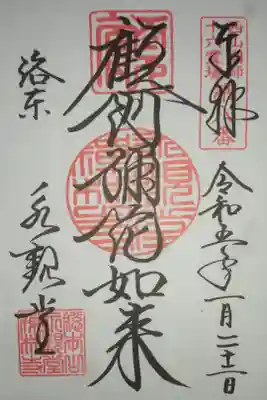 奉拝
令和五年一月二十二日
顧阿彌陀如来
洛東
永觀堂